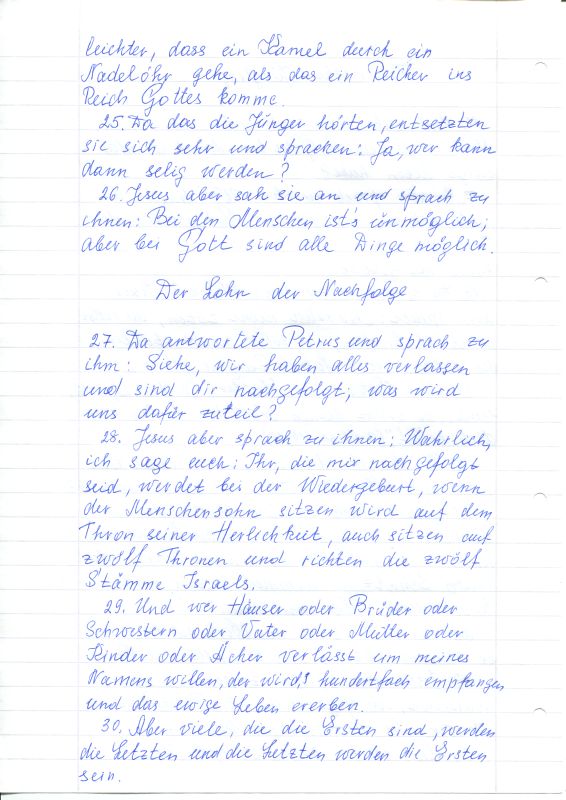 leichter, dass ein Kamel durch ein
Nadelöhr gehe, als das ein Reicher ins
Reich Gottes komme.
25. Da das die Jünger hörten, entsetzten
sie sich sehr und spracken: Ja, wer kann
dann selig werden?
26. Jesus aber sah sie an und sprach zu
ihnen: Bei den Menschen ist's unmöglich;
aber bei Gott sind alle Dinge möglich.
Der Lohn der Nachfolge
27. Da antwortete Petrus und sprach zu
ihm: Siehe, wir haben alles verlassen
und sind dir nachgefolgt; was wird
uns dafür zuteil?
28. Jesus aber sprach zu ihnen: Wahrlich,
ich sage euch: Ihr, die mir nachgefolgt
seid, werdet bei der Wiedergeburt, wenn
der Menschensohn sitzen wird auf dem
Thron seiner Herlichkeit, auch sitzen auf
zwölf Thronen und richten die zwölf
Stämme Israels.
29. Und wer Häuser oder Brüder oder
Schwestern oder Vater oder Mutter oder
Kinder oder Äcker verlässt um meines
Namens willen, der wird,s hundertfach empfangen
und das ewige Leben ererben.
30. Aber viele, die die Ersten sind, werden
die Letzten und die Letzten werden die Ersten
sein.